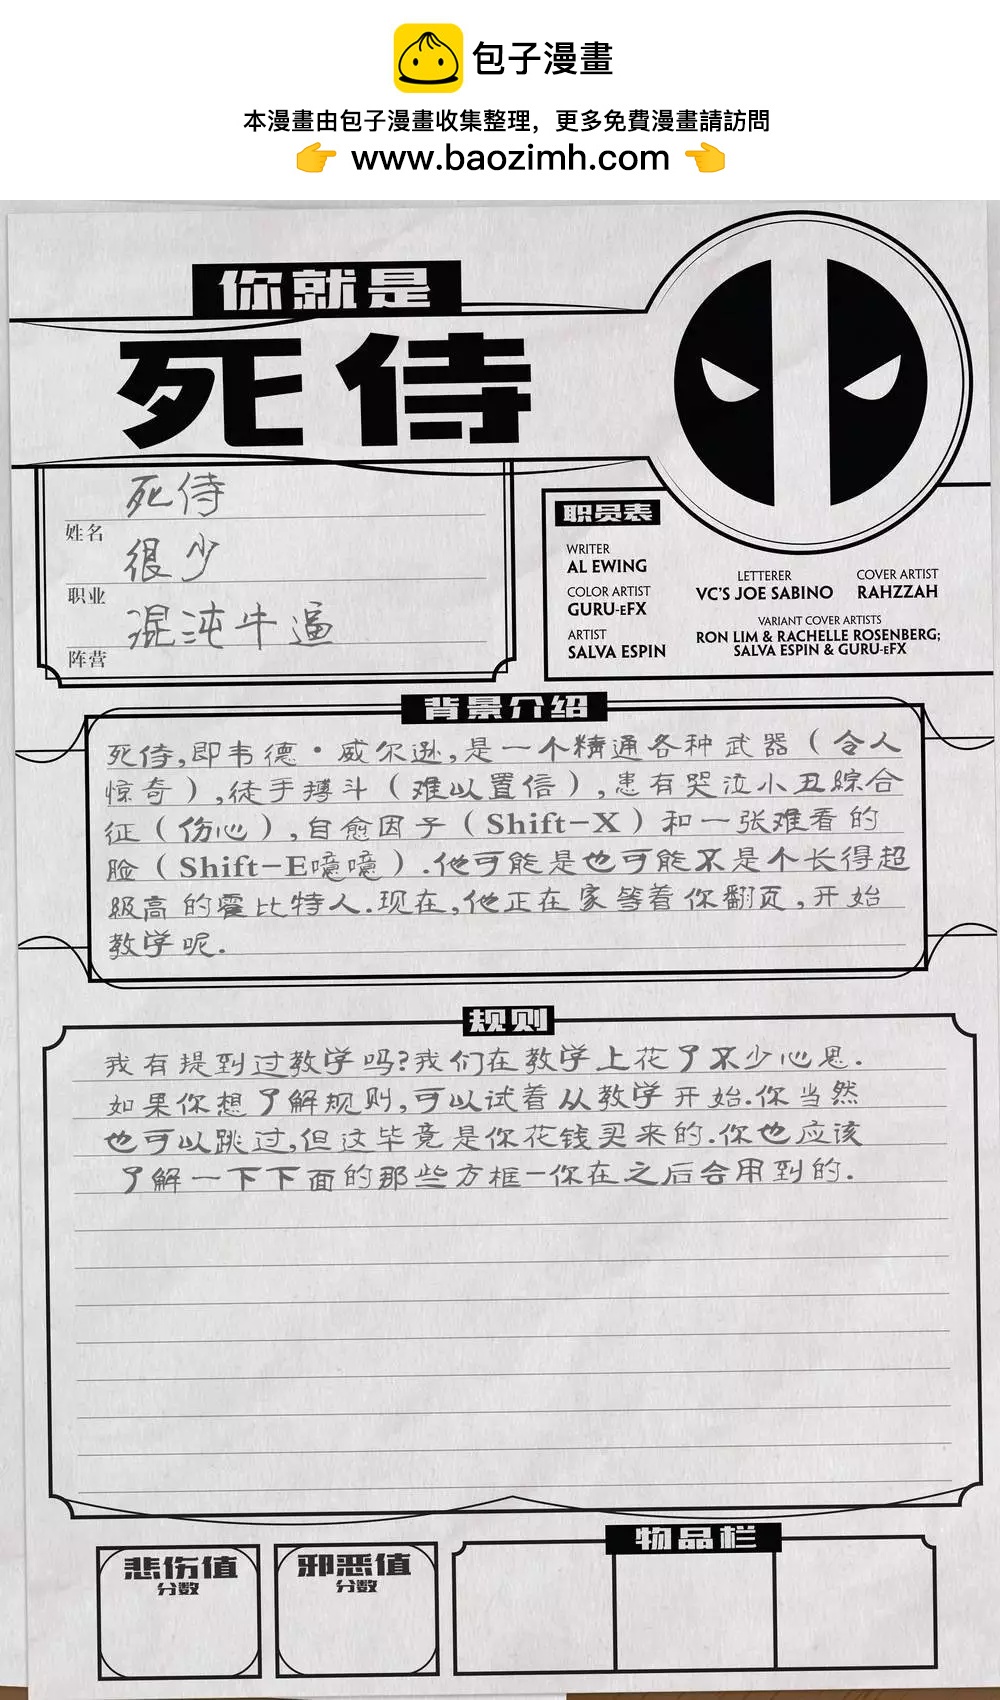 包子漫畫
本漫畫由包子漫畫收集整理，更多免費漫畫請訪問
👉 www.baozimh.com 👈
你就是
死侍
死侍
姓名
很少
职业
混沌牛逼
阵营
职员表
WRITER
AL EWING
COLOR ARTIST
GURU-eFX
ARTIST
SALVA ESPIN
LETTERER
VC'S JOE SABINO
COVER ARTIST
RAHZZAH
VARIANT COVER ARTISTS
RON LIM & RACHELLE ROSENBERG;
SALVA ESPIN & GURU-eFX
背景介绍
死侍,即韦德·威尔逊,是一个精通各种武器(令人
惊奇),徒手搏斗(难以置信),患有哭泣小丑綜合
征(伤心),自愈因子(Shift-X)和一张难看的
脸(Shift-E噫噫).他可能是也可能不是个长得超
級高的霍比特人.现在,他正在家等着你翻页,开始
教学呢.
规则
我有提到过教学吗?我们在教学上花了不少心思.
如果你想了解规则,可以试着从教学开始.你当然
也可以跳过,但这毕竟是你花钱买来的.你也应该
了解一下下面的那些方框-你在之后会用到的.
悲伤值
分数
邪恶值
分数
物品栏